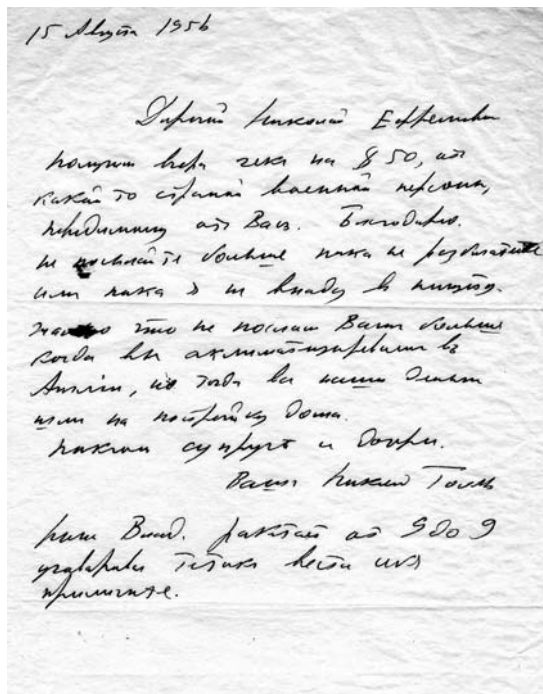 15 Августа 1956
Дорогой Николай Ефремович
получил вчера чек на $50, от
какой то странной военной персоны,
от Вас. Благодарю.
не посылайте больше пока не разбогатеете
или пока я не впаду в нищету.
что не послал Вам больше
когда вы акклиматизировались въ
Англии, но тогда все наши деньги
шли на постройку дома.
поклон супруге и дочери.
Ваш Николай
работает от 9 до 9
вести себя
приличнее.